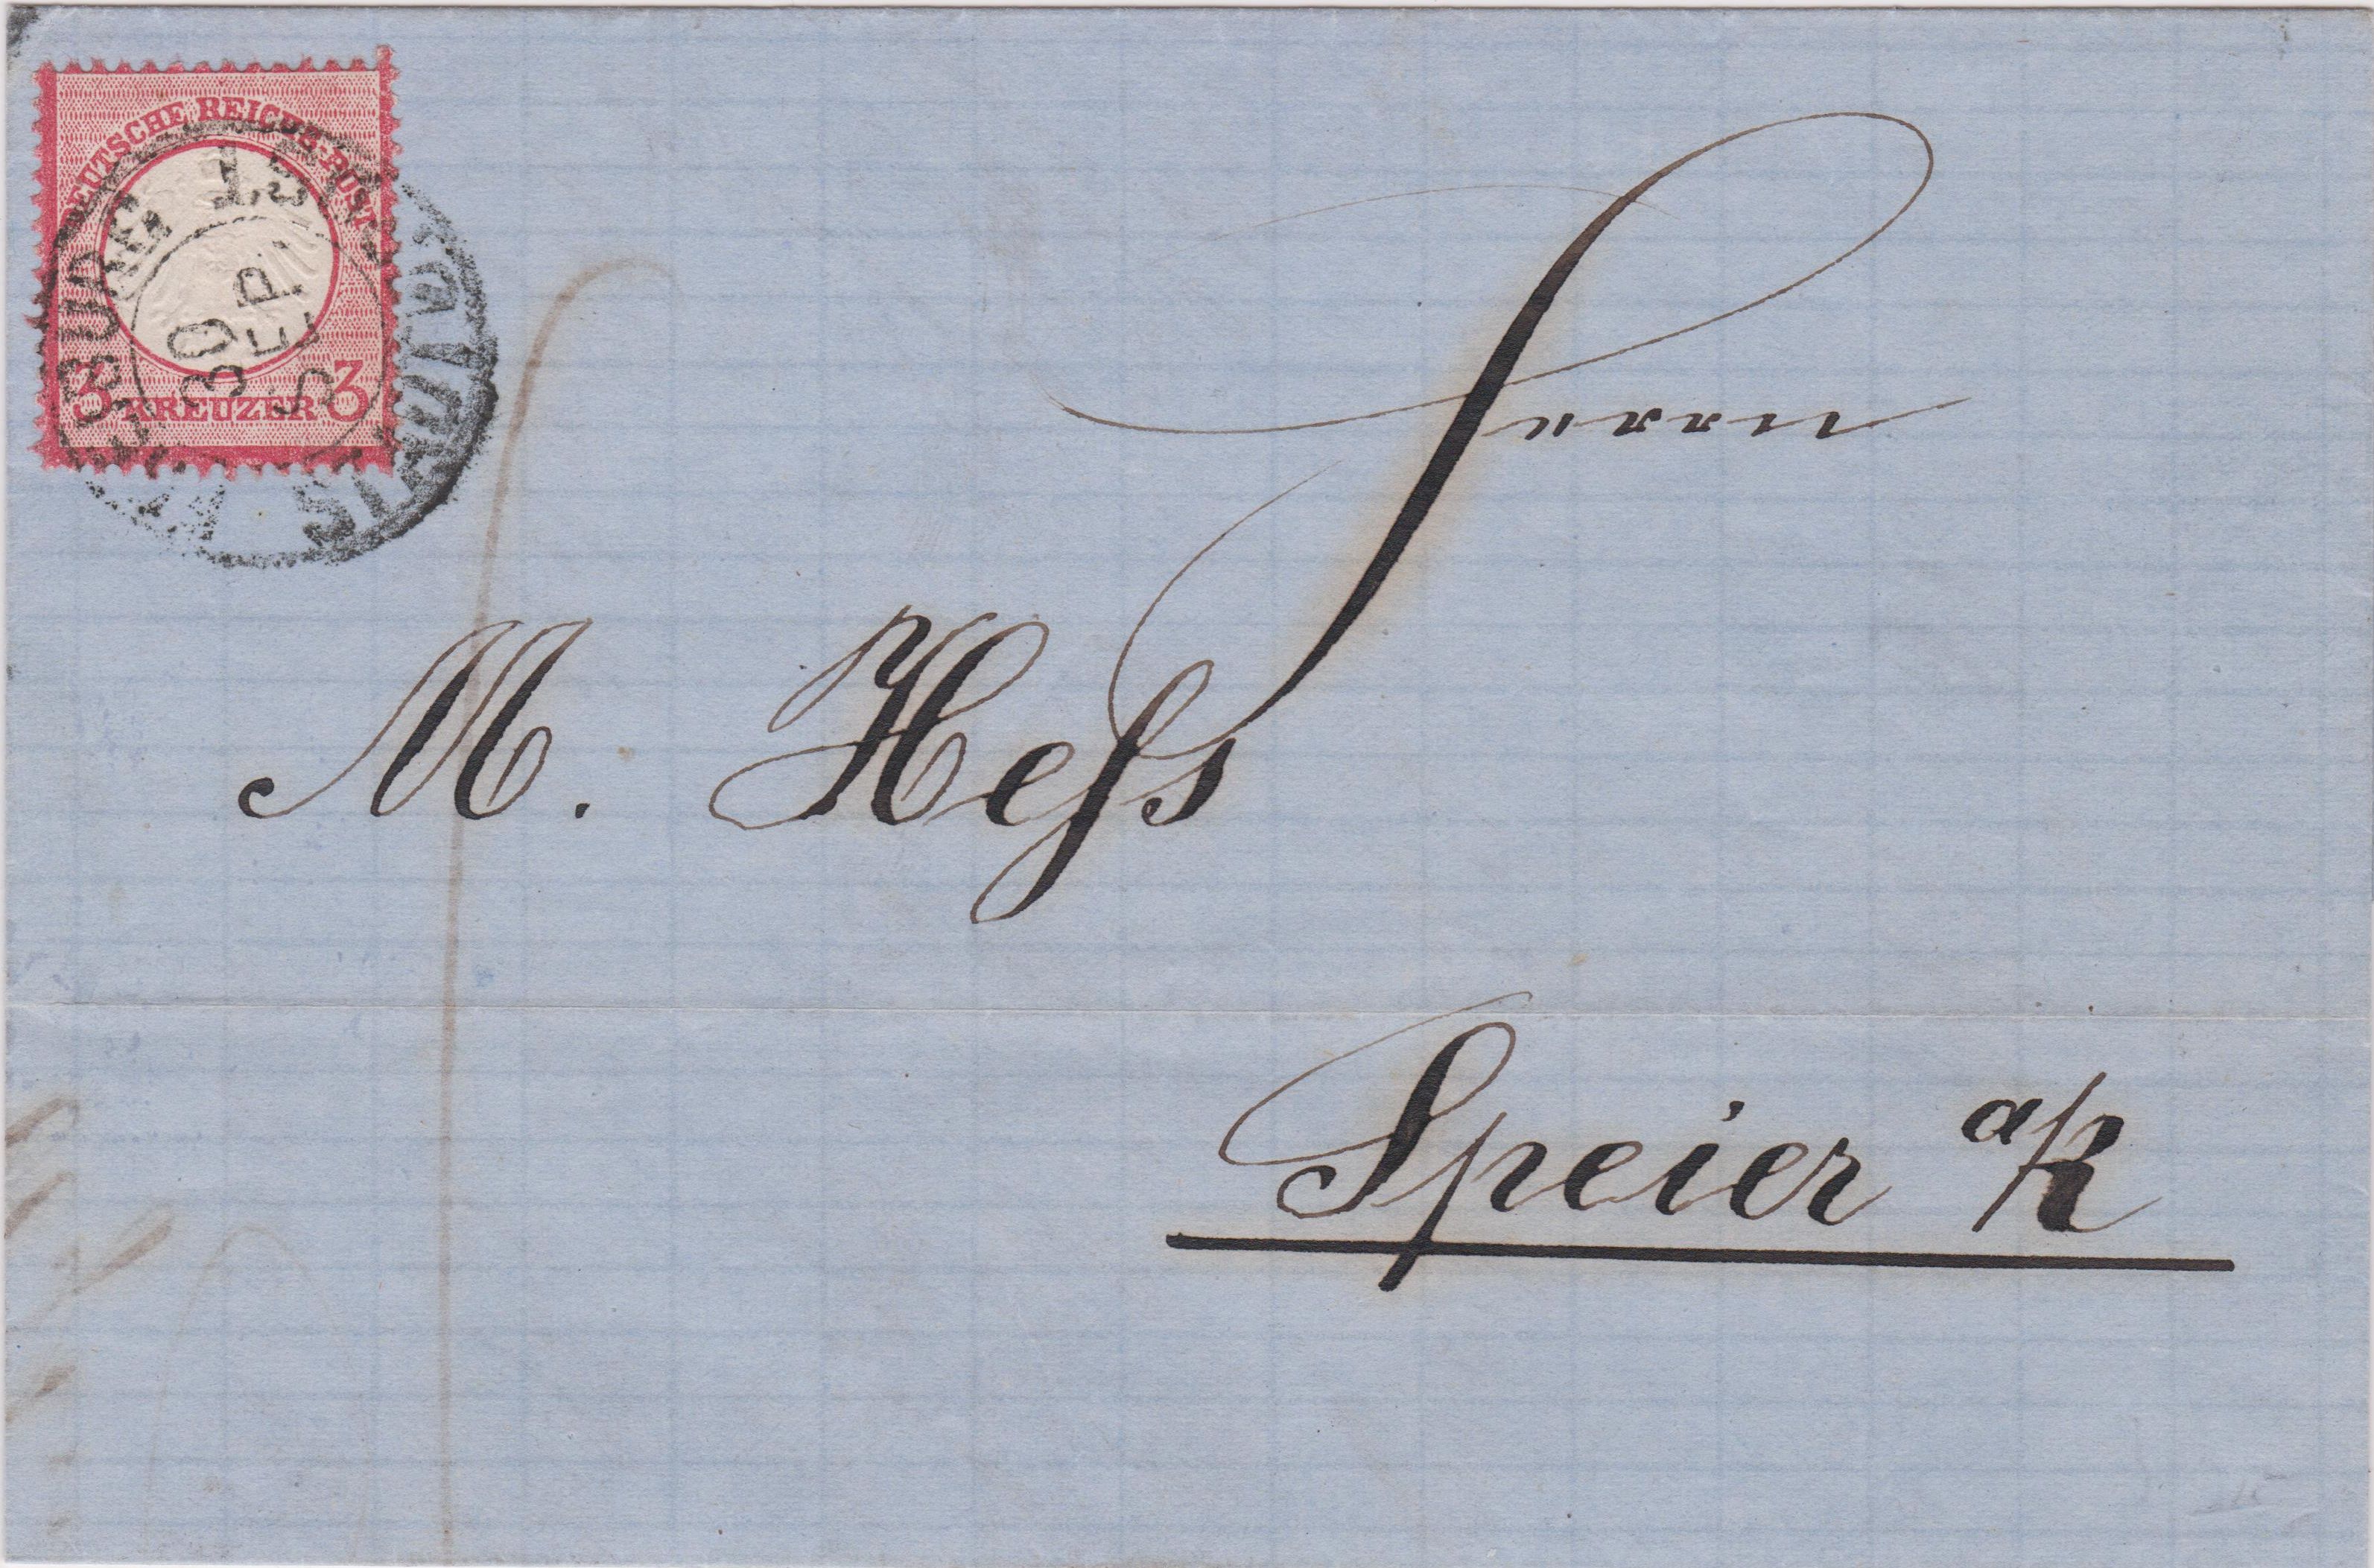 DEUTSCHE REICHS-POST
3 KREUZER 3
30
SEP.
Herrn
M. Heſs
Speier a/R